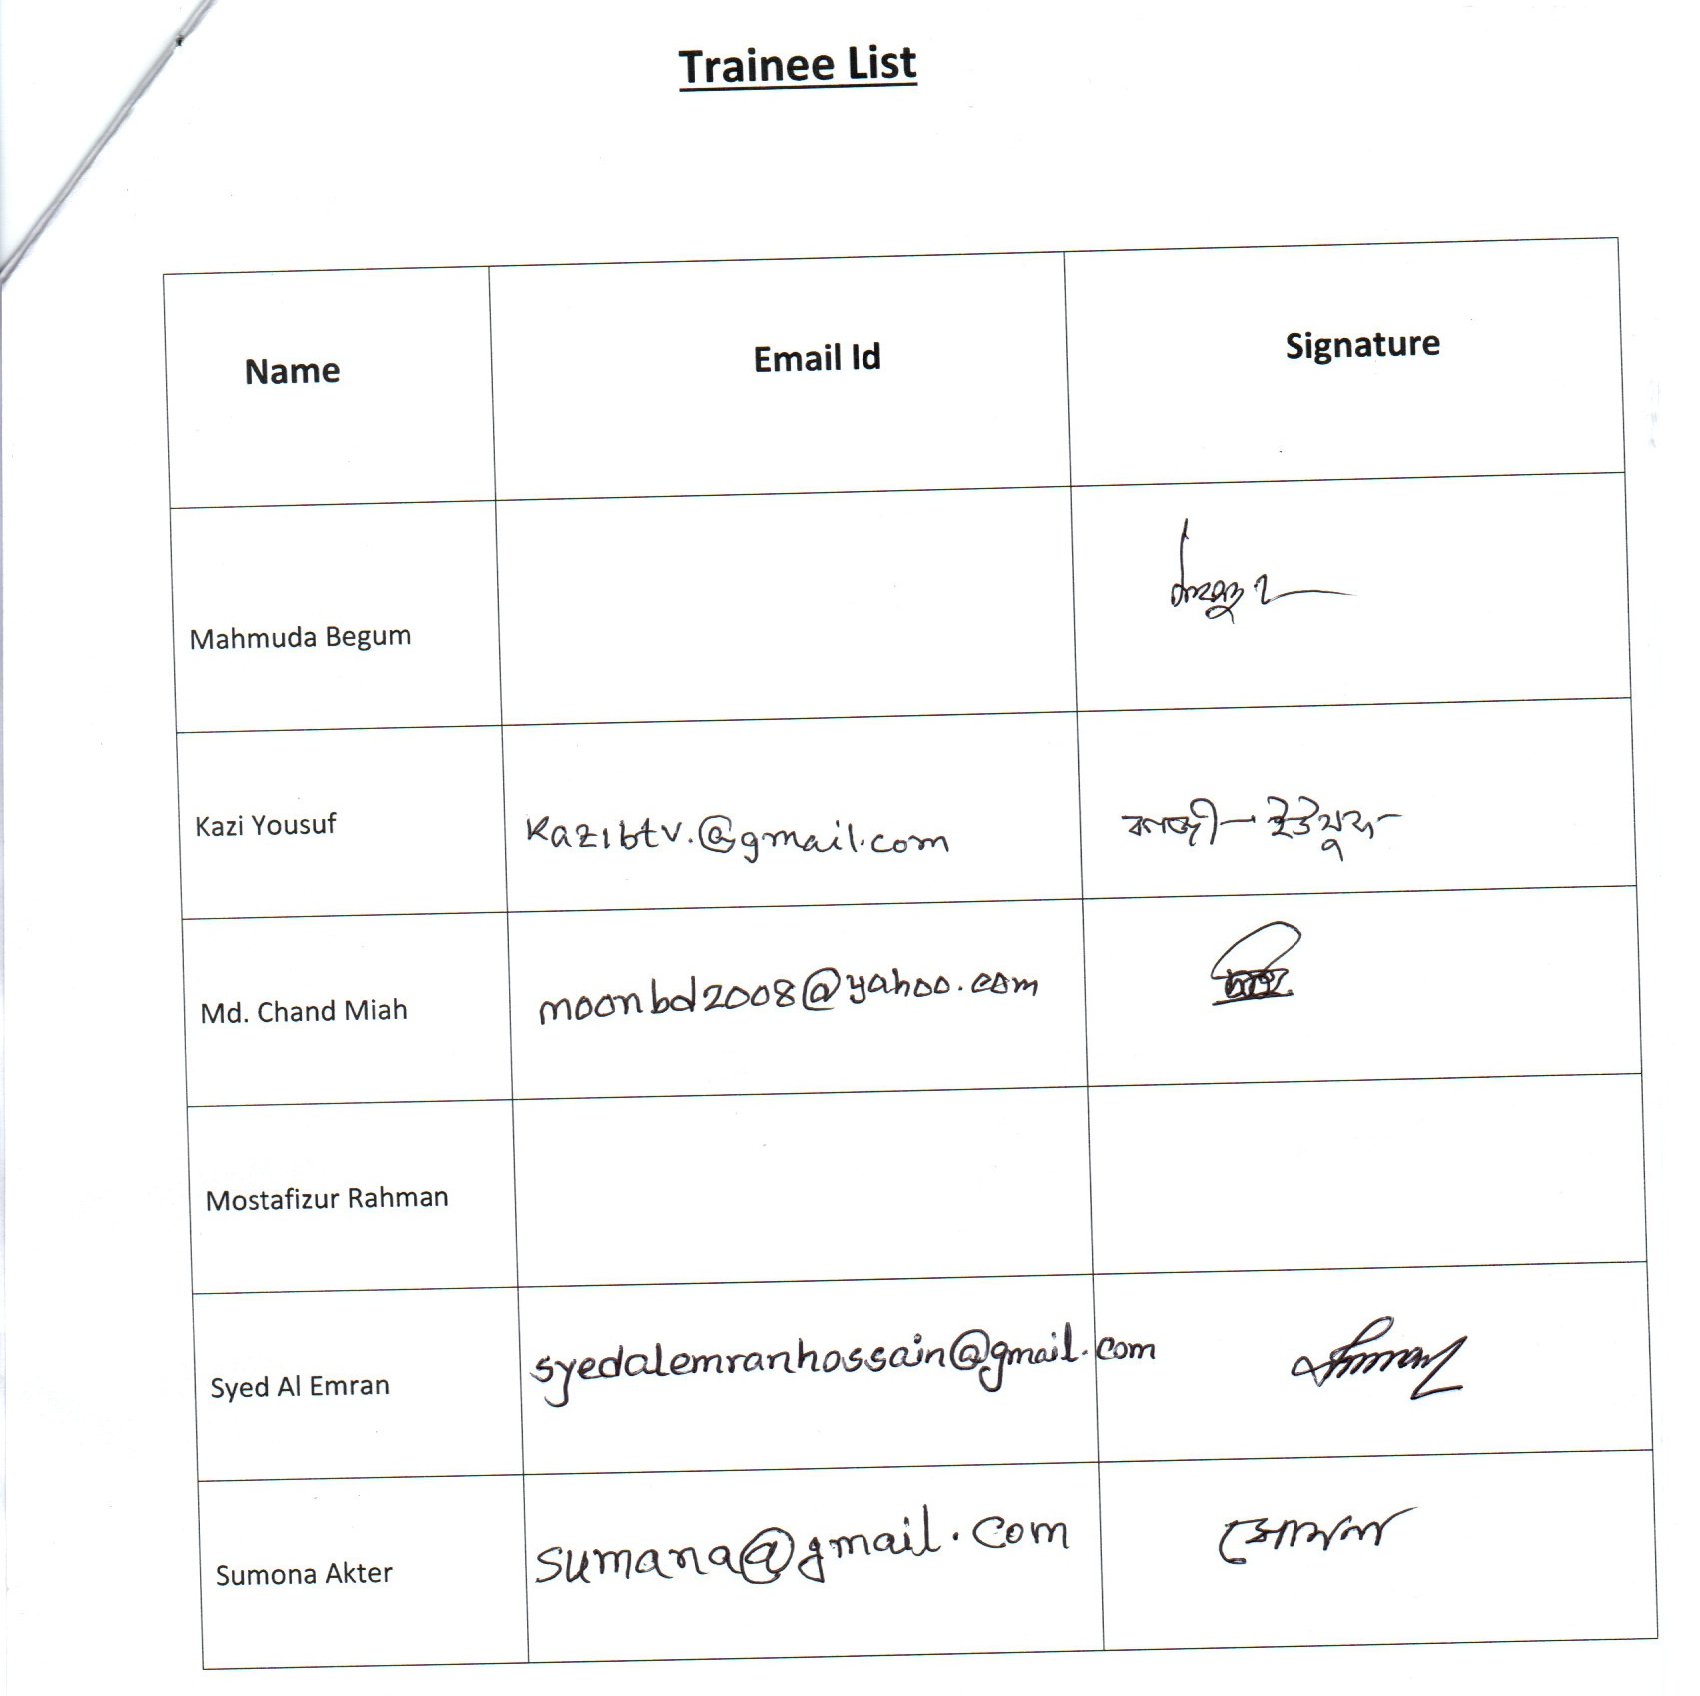 Trainee List
Name Email Id Signature
Mahmuda Begum
Kazi Yousuf kazibtv.@gmail.com কাজী ইউসুফ
Md. Chand Miah moonbd2008@yahoo.com
Mostafizur Rahman
Syed Al Emran syedalemranhossain@gmail.com
Sumona Akter sumana@gmail.com